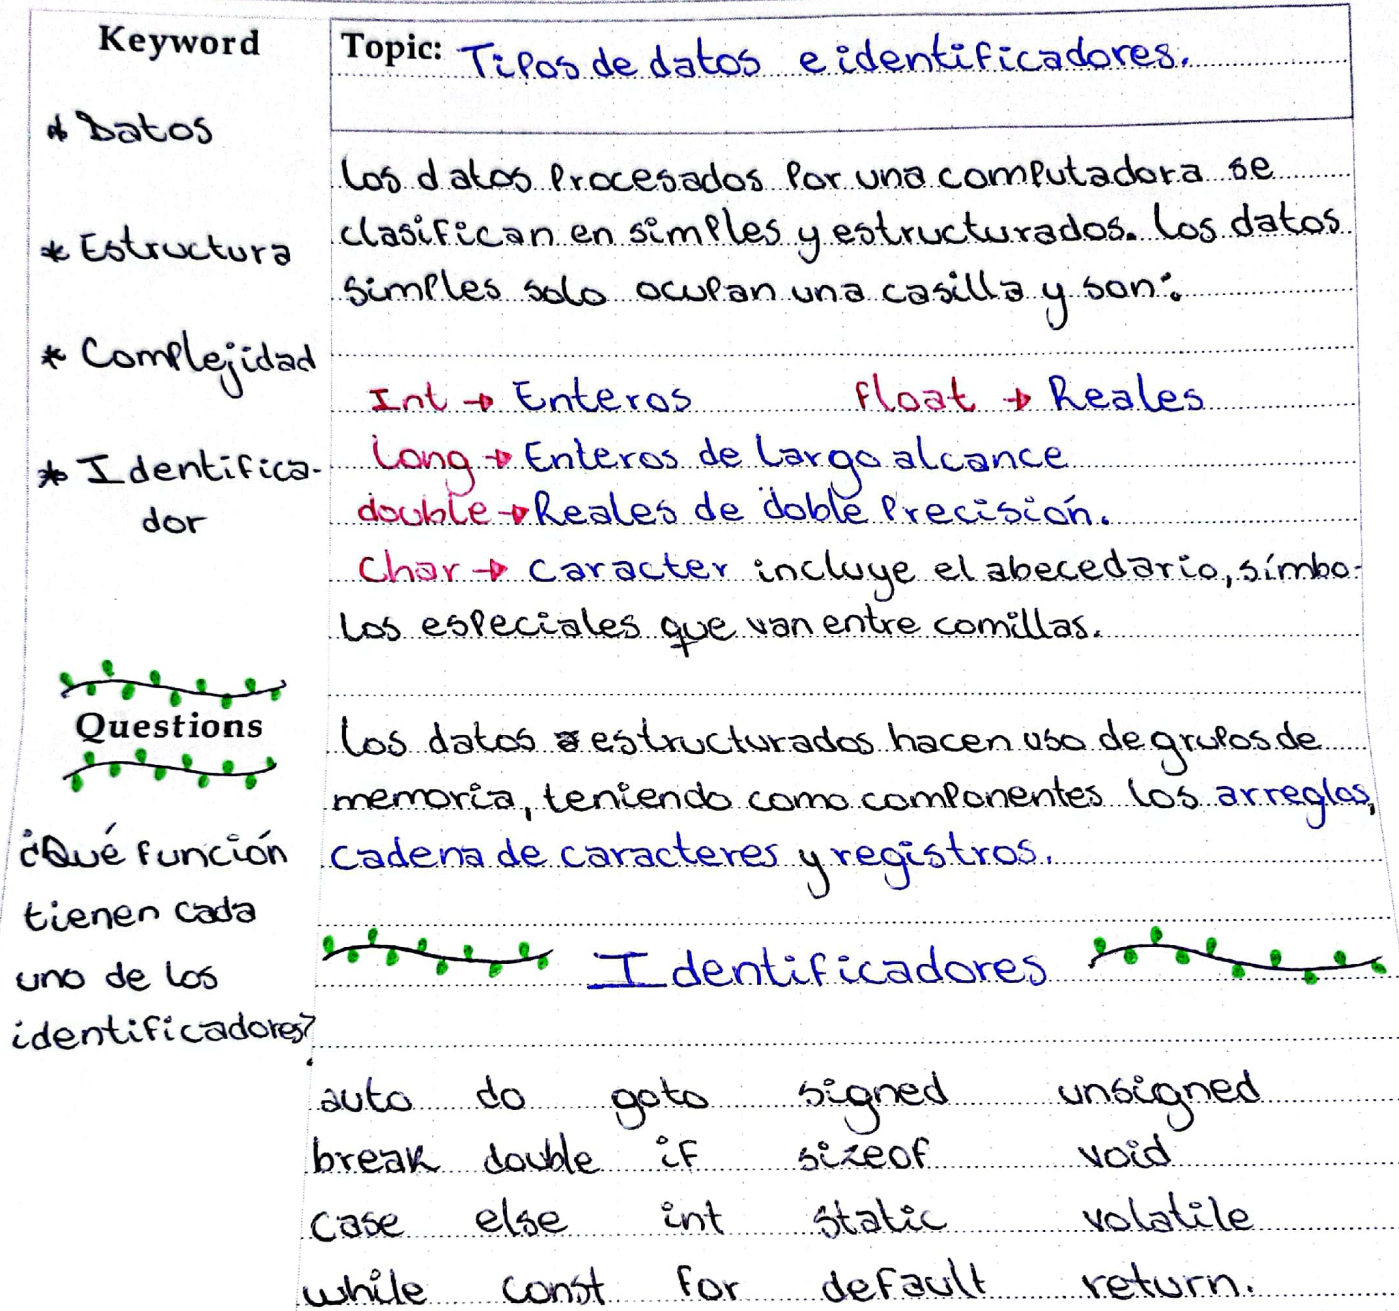 Keyword
* Datos
* Estructura
* Complejidad
* Identifica-
dor
Questions
¿Qué función
tienen cada
uno de los
identificadores?
Topic: Tipos de datos e identificadores.
Los datos procesados por una computadora se
clasifican en simples y estructurados. Los datos
simples solo ocupan una casilla y son:
Int → Enteros float → Reales
Long → Enteros de largo alcance
double → Reales de doble precisión.
Char → caracter incluye el abecedario, símbo-
los especiales que van entre comillas.
Los datos estructurados hacen uso de grupos de
memoria, teniendo como componentes los arreglos,
cadena de caracteres y registros.
Identificadores
auto do goto signed unsigned
break double if sizeof void
case else int static volatile
while const for default return.